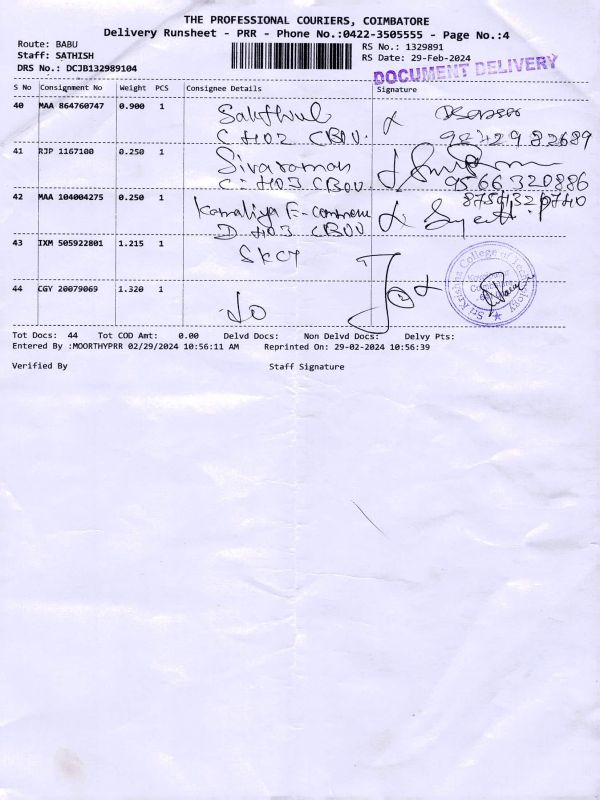 THE PROFESSIONAL COURIERS, COIMBATORE
Delivery Runsheet - PRR - Phone No.:0422-3505555 - Page No.:4
Route: BABU
Staff: SATHISH
DRS No.: DCJB132989104
RS No.: 1329891
RS Date: 29-Feb-2024
DOCUMENT DELIVERY
S No Consignment No Weight PCS Consignee Details Signature
40 MAA 864760747 0.900 1
C 402 CBOU. 9242982689
41 RJP 1167100 0.250 1 Sivaraman
C: 403 CBOU 9566320886
42 MAA 104004275 0.250 1 Kamaliya E-commerce
D 403 CBOU
43 IXM 505922801 1.215 1 SKCT
44 CGY 20079069 1.320 1 do
Sri Krishna College of Technology
Tot Docs: 44 Tot COD Amt: 0.00 Delvd Docs: Non Delvd Docs: Delvy Pts:
Entered By :MOORTHYPRR 02/29/2024 10:56:11 AM Reprinted On: 29-02-2024 10:56:39
Verified By Staff Signature